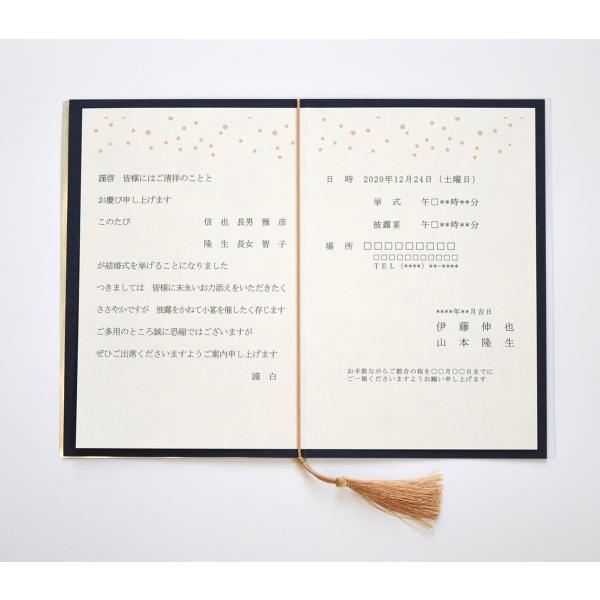 謹啓　皆様にはご清祥のことと
お慶び申し上げます
このたび　信　也　長男　雅　彦
隆　生　長女　智　子
が結婚式を挙げることになりました
つきましては　皆様に末永いお力添えをいただきたく
ささやかですが　披露をかねて小宴を催したく存じます
ご多用のところ誠に恐縮ではございますが
ぜひご出席くださいますようご案内申し上げます
謹　白
日　時　2020年12月24日（土曜日）
挙　式　午□**時**分
披露宴　午□**時**分
場　所　□□□□□□□□□
□□□□□□□□□□□
ＴＥＬ（****）**-****
****年**月吉日
伊　藤　伸　也
山　本　隆　生
お手数ながらご都合の程を○○月○○日までに
ご一報くださいますようお願い申し上げます